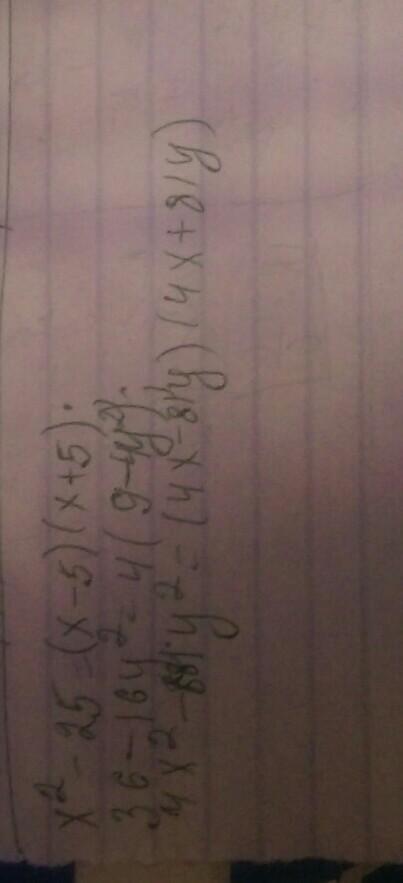 x² - 25 = (x - 5)(x + 5).
36 - 16y² = 4(9 - 4y²).
4x² - 81y² = (4x - 81y)(4x + 81y)